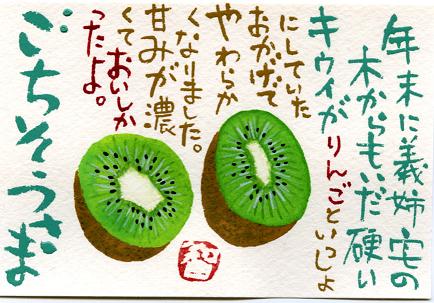 年末に義姉宅の
木からもいだ硬い
キウイがりんごといっしょ
にしていた
おかげで
やわらか
くなりました。
甘みが濃
くておいしか
ったよ。
ごちそうさま